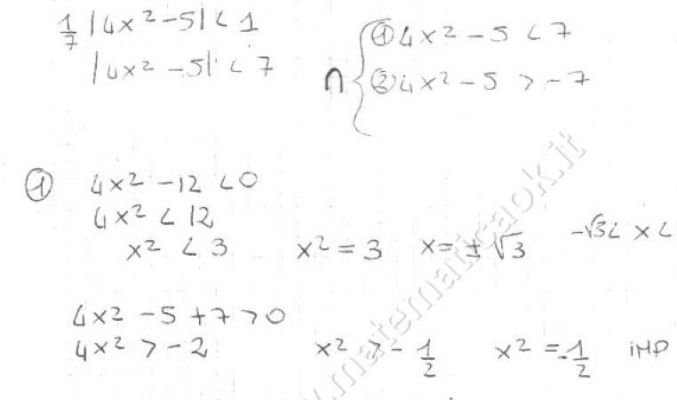 1/7 |4x² -5| < 1
|4x² -5| < 7
∩ { ① 4x² - 5 < 7
② 4x² - 5 > -7
① 4x² -12 < 0
4x² < 12
x² < 3 x² = 3 x = ± √3 -√3 < x <
4x² - 5 + 7 > 0
4x² > -2 x² > - 1/2 x² = -1/2 imp
www.matematicaok.it